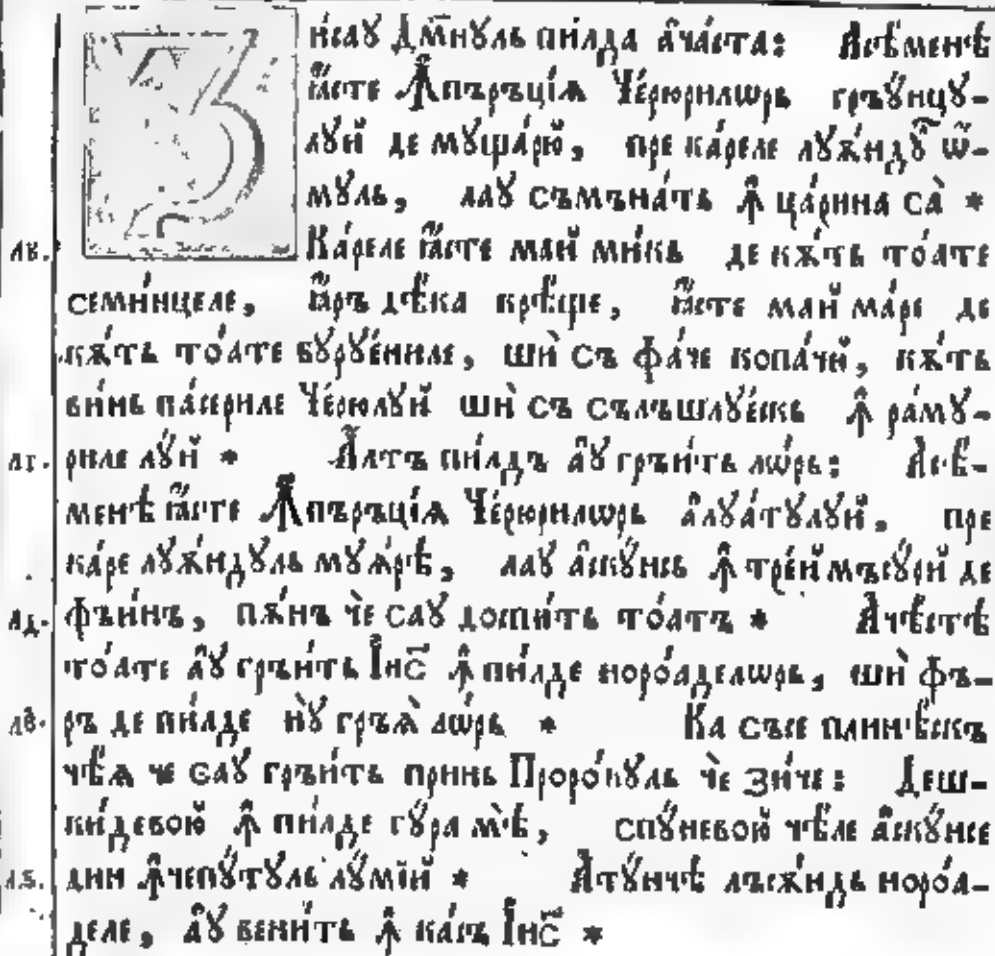 Зи́сау Дм҃нꙋль пи́лда а҆ча́ста: А҆сѣ́менѣ
ꙗ҆́сте Ꙟ҆пъръці́ѧ Че́рюрилѡрь гръꙋ́нцꙋ-
лꙋй де мꙋща́рю, пре ка́реле лꙋѫ́ндꙋ ѡ҆́-
мꙋль, лаꙋ съмъна́ть ꙟ҆ ца́рина са̀ *
лв. Ка́реле ꙗ҆́сте май ми́кь де кѫ́ть то́ате
семи́нцеле, ꙗ҆́ръ дѣ́ка крѣ́ще, ꙗ҆́сте май ма́ре де
кѫ́ть то́ате бꙋрꙋе́ниле, шѝ съ фа́че копа́чй, кѫ́ть
ви́нь па́сериле Че́рюлꙋй шѝ съ сълъшлꙋе́скь ꙟ҆ ра́мꙋ-
лг. риле лꙋ́й * А҆́лтъ пи́лдъ а҆́ꙋ гръи́ть лѡ́рь: А҆сѣ́-
менѣ ꙗ҆́сте Ꙟ҆пъръці́ѧ Че́рюрилѡрь а҆лꙋа́тꙋлꙋй, пре
ка́ре лꙋѫ́ндꙋль мꙋѫ́рѣ, лаꙋ а҆скꙋ́нсь ꙟ҆ тре́й мъсꙋ́рй де
лд. фъи́нъ, пѫ́нъ чѐ саꙋ доспи́ть то́атъ * А҆че́стѣ
то́ате а҆́ꙋ гръи́ть І҆ис҃ ꙟ҆ пи́лде норо́аделѡрь, шѝ фъ-
лє. ръ де пи́лде нꙋ̀ гръѧ̀ лѡ́рь * Ка съсе плинѣ́скъ
чѣ́ѧ че саꙋ гръи́ть принь Проро́кꙋль чѐ зи́че: Деш-
ки́девою ꙟ҆ пи́лде гꙋ́ра мѣ̀, спꙋ́невой чѣ́ле а҆скꙋ́нсе
лѕ. дин ꙟ҆чепꙋ́тꙋль лꙋ́мїй * А҆тꙋ́нчѣ лъсѫ́ндь норо́а-
деле, а҆́ꙋ вени́ть ꙟ҆ ка́съ І҆ис҃ *